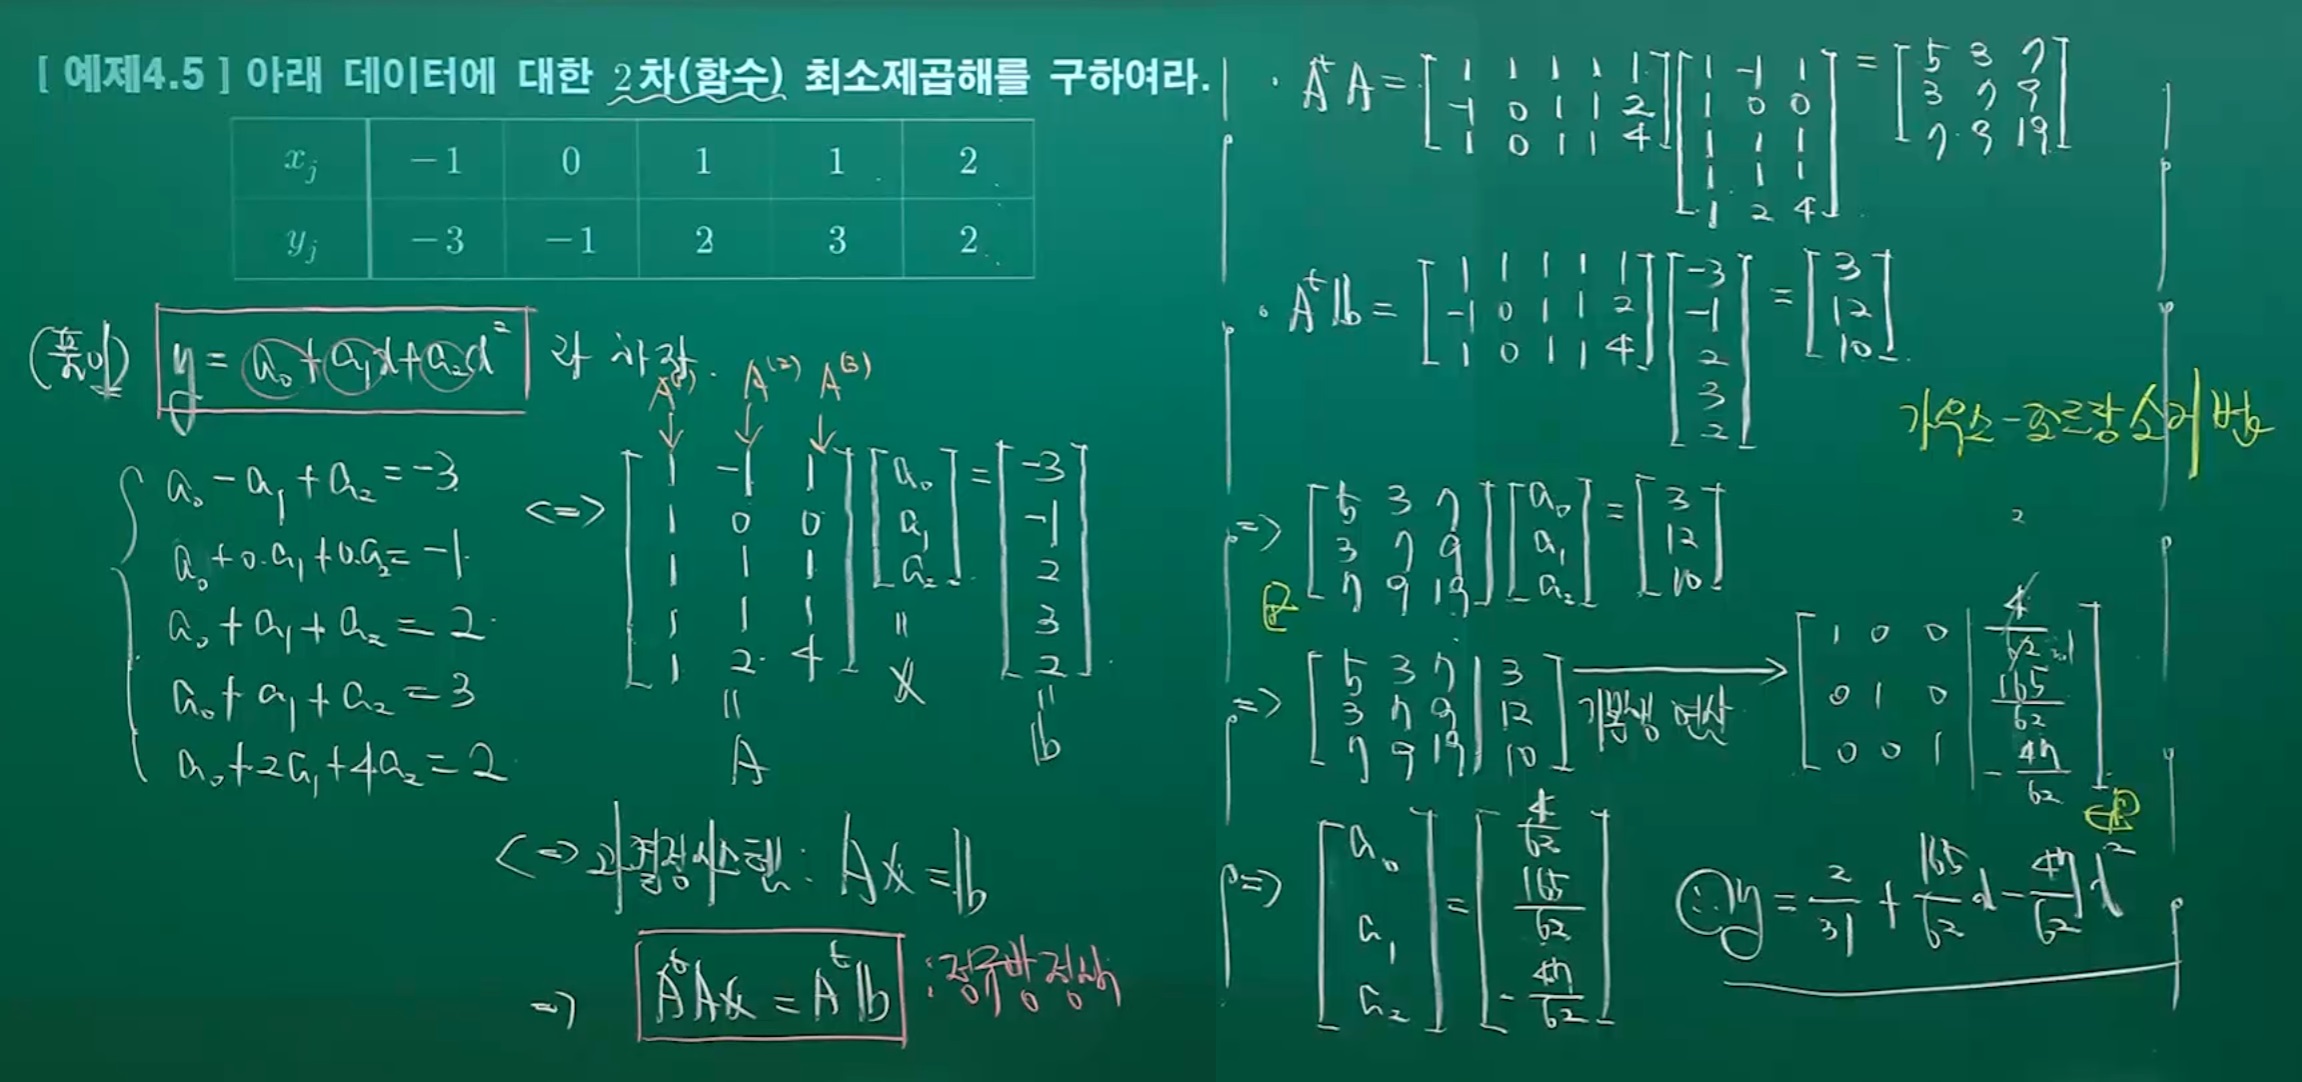 [ 예제4.5 ] 아래 데이터에 대한 2차(함수) 최소제곱해를 구하여라.
x_j -1 0 1 1 2
y_j -3 -1 2 3 2
(풀이) y = a₀+a₁x+a₂x² 라 하자.
A⁽¹⁾ A⁽²⁾ A⁽³⁾
a₀ - a₁ + a₂ = -3
a₀+0·a₁+0·a₂ = -1
a₀ + a₁ + a₂ = 2
a₀ + a₁ + a₂ = 3
a₀+2a₁+4a₂ = 2
<=> [1 -1 1; 1 0 0; 1 1 1; 1 1 1; 1 2 4] [a₀; a₁; a₂] = [-3; -1; 2; 3; 2]
" " "
A x b
<=> 과결정시스템 : Ax = b
=> AᵗAx = Aᵗb : 정규방정식
· AᵗA = [1 1 1 1 1; -1 0 1 1 2; 1 0 1 1 4] [1 -1 1; 1 0 0; 1 1 1; 1 1 1; 1 2 4] = [5 3 7; 3 7 9; 7 9 19]
· Aᵗb = [1 1 1 1 1; -1 0 1 1 2; 1 0 1 1 4] [-3; -1; 2; 3; 2] = [3; 12; 10]
가우스-조르당 소거법
=> [5 3 7; 3 7 9; 7 9 19] [a₀; a₁; a₂] = [3; 12; 10]
=> [5 3 7 | 3; 3 7 9 | 12; 7 9 19 | 10] 기본행 연산 → [1 0 0 | 4/62; 0 1 0 | 165/62; 0 0 1 | -47/62]
2
31
=> [a₀; a₁; a₂] = [4/62; 165/62; -47/62]
∴ y = 2/31 + 165/62 x - 47/62 x²